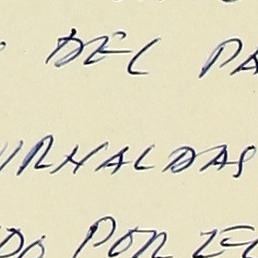 DEL PA
URNALDAS
DO POR EL